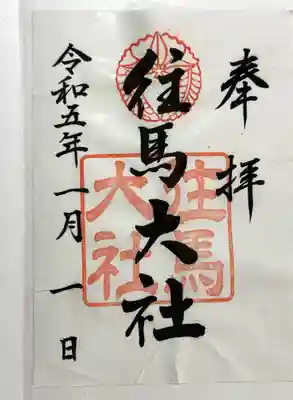 奉拝
往馬大社
往馬
大社
令和五年一月一日